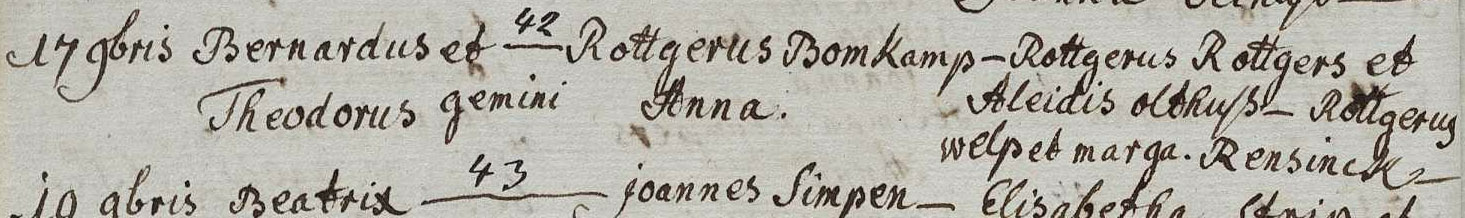 42
17 9bris Bernardus et — Rottgerus Bomkamp – Rottgerus Rottgers et
Theodorus gemini Anna. Aleidis olthuß – Rottgerus
welp et marga. Rensinck –
43
19 9bris Beatrix — joannes Simpen – Elisabetha